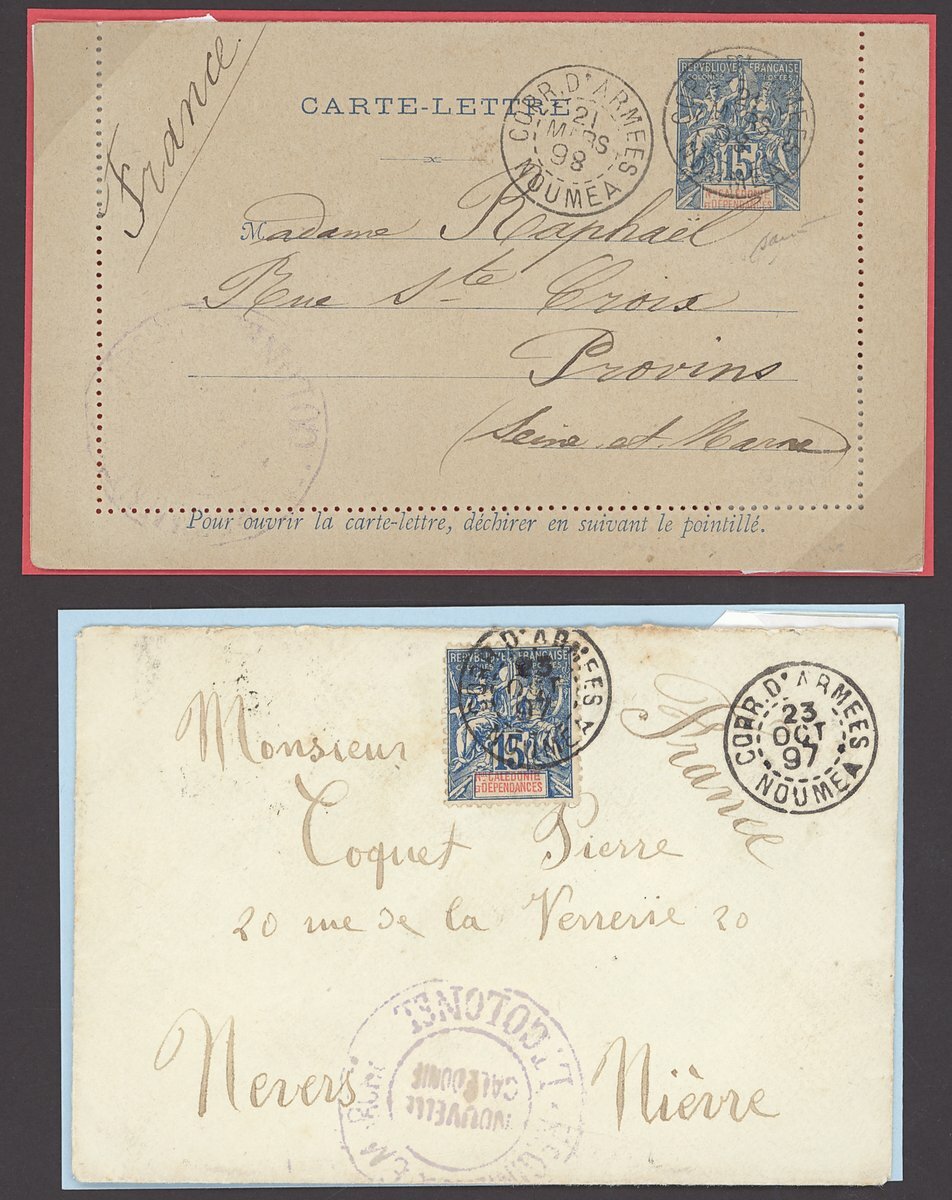 France
CARTE-LETTRE
CORR. D'ARMEES
21
MARS
98
NOUMEA
REPUBLIQUE FRANÇAISE
COLONIES POSTES
15
Nlle CALEDONIE
ET DEPENDANCES
Madame Raphaël
Rue Ste Croix
Provins
(Seine et Marne)
Pour ouvrir la carte-lettre, déchirer en suivant le pointillé.
REPUBLIQUE FRANÇAISE
15
Nlle CALEDONIE
ET DEPENDANCES
CORR. D'ARMEES
23
OCT
97
NOUMEA
France
CORR. D'ARMEES
23
OCT
97
NOUMEA
Monsieur
Coquet Pierre
20 rue de la Verrerie 20
Nevers Nièvre
LT COLONEL
NOUVELLE
CALEDONIE